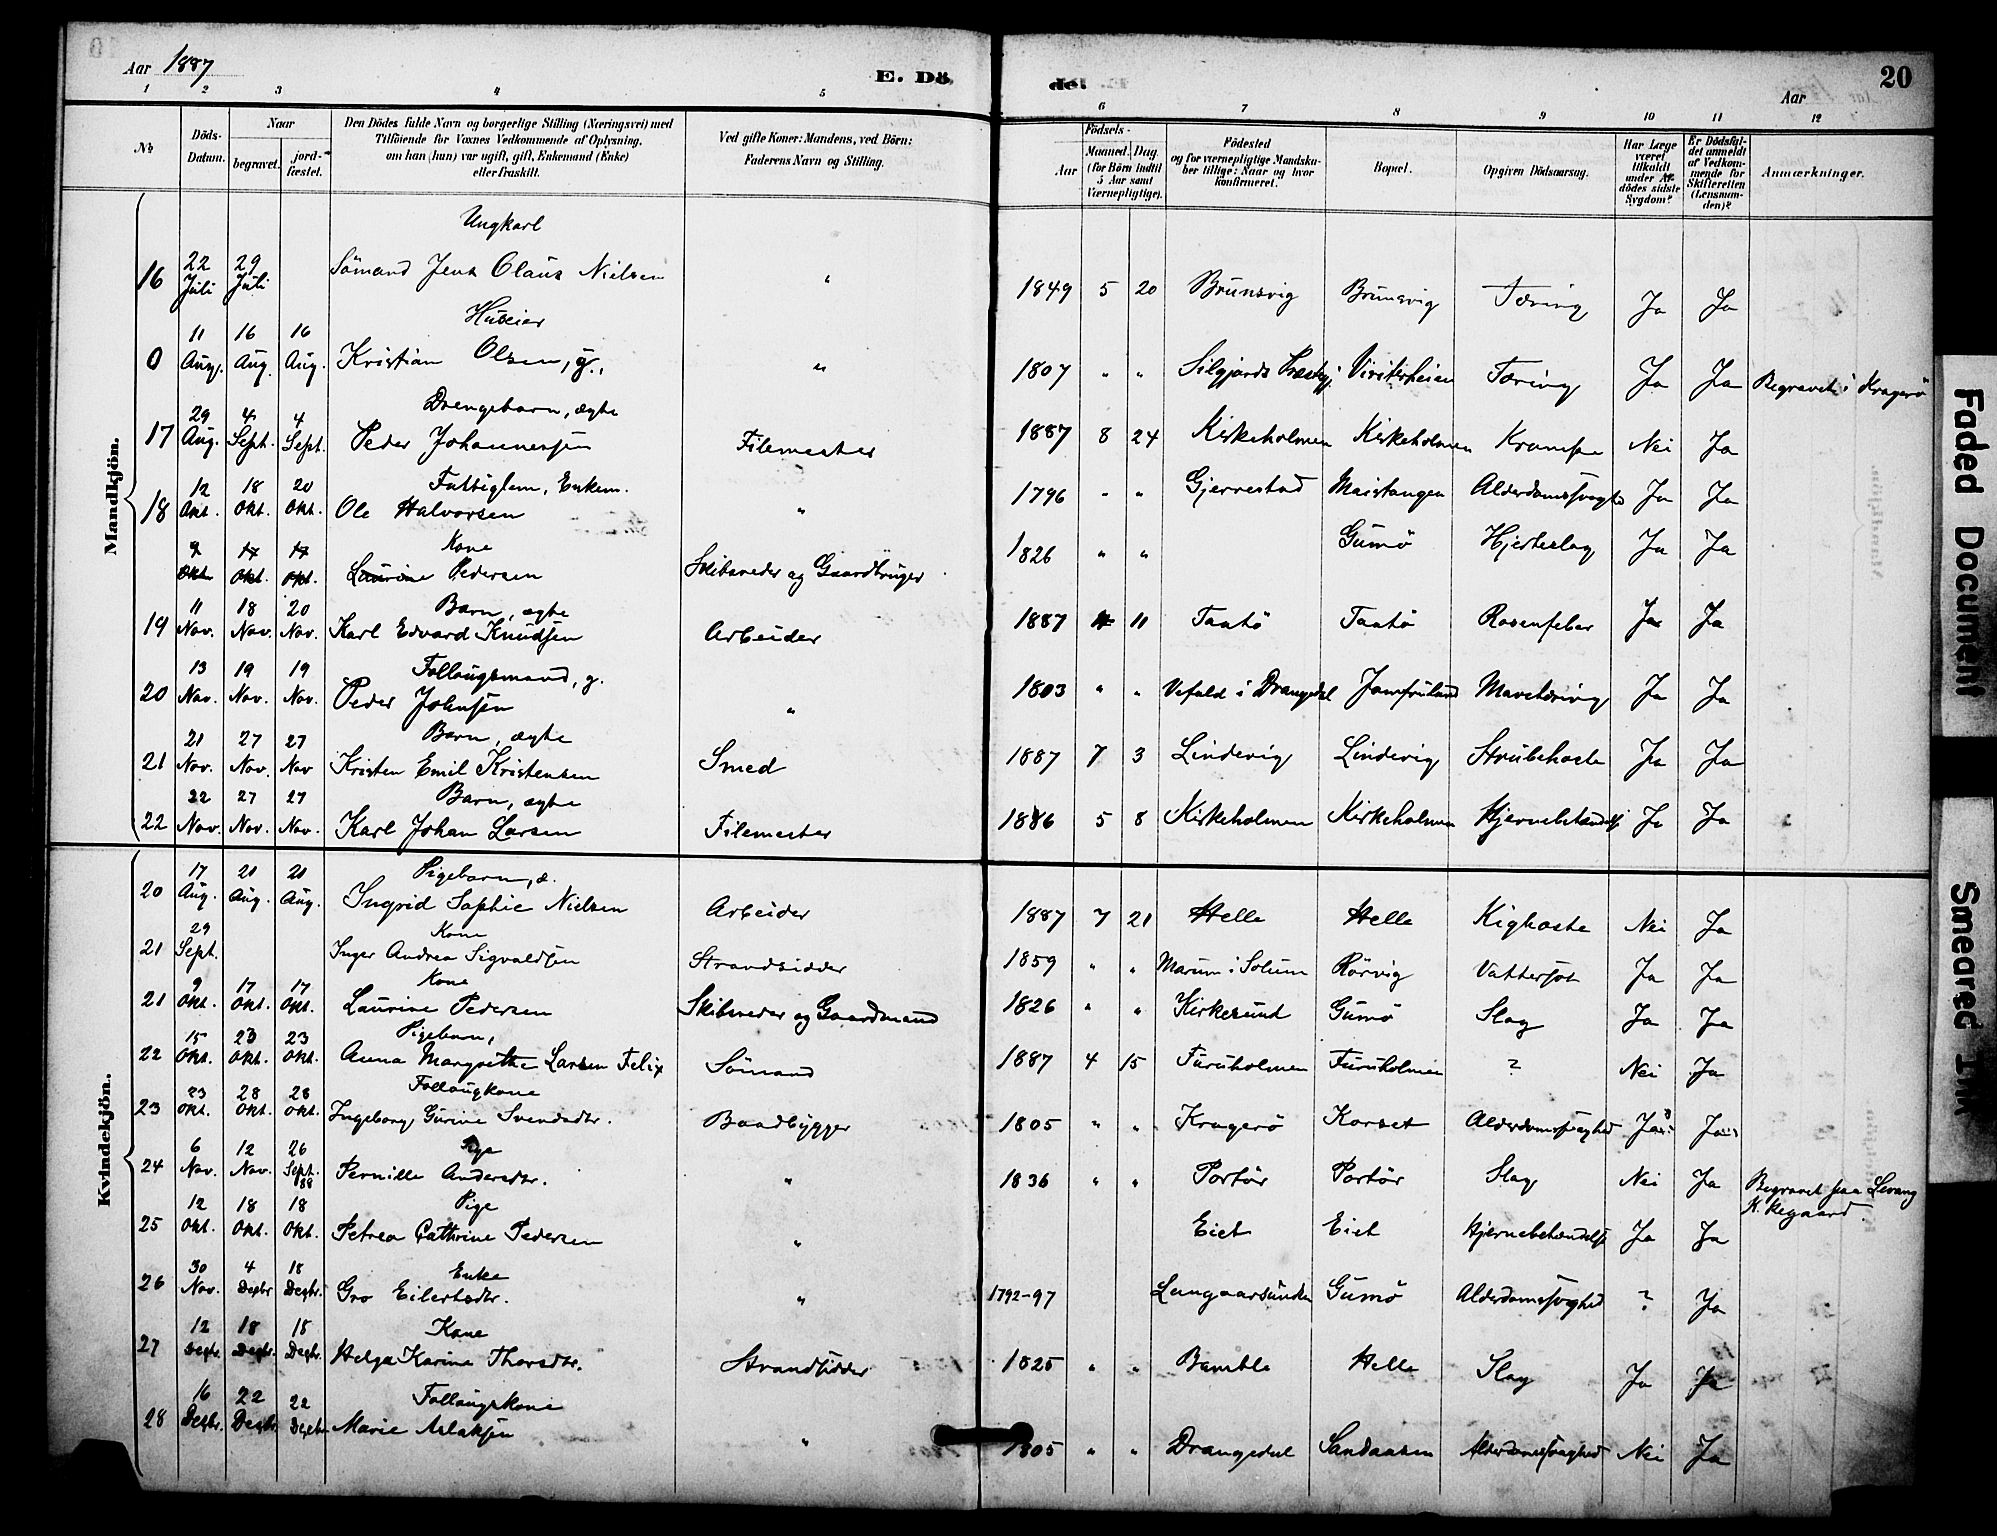 Aar 1887
E. Dö
de.
Aar
20
1 2 3 4 5 6 7 8 9 10 11 12
No
Döds-Datum.
Naar
begravet.
jord-fæstet.
Den Dödes fulde Navn og borgerlige Stilling (Næringsvei) med
Tilföiende for Voxnes Vedkommende af Oplysning,
om han (hun) var ugift, gift, Enkemand (Enke)
eller fraskilt.
Ved gifte Koner: Mandens, ved Börn:
Faderens Navn og Stilling.
Födsels-
Aar
Maaned.
Dag.
(for Börn indtil
5 Aar samt
Værnepligtige).
Födested
og for værnepligtige Mandska-
ber tillige: Naar og hvor
konfirmeret.
Bopæl.
Opgiven Dödsaarsag.
Har Læge
været
tilkaldt
under Af-
dödes sidste
Sygdom?
Er Dödsfal-
det anmeldt
af Vedkom-
mende for
Skifteretten
(Lensman-
den)?
Anmærkninger.
Mandkjön.
16 22 Juli 29 Juli Ungkarl Sömand Jens Claus Nielsen " 1849 5 20 Brunsvig Brunsvig Tæring Ja Ja
0 11 Aug. 16 Aug. 16 Aug. Huseier Kristian Olsen, g., " 1807 " " Silgjords Tæring Ja Ja Begravet i Kragerö
17 29 Aug. 4 Sept. 4 Sept. Drengebarn, ægte Peder Johannessen Filemester 1887 8 24 Kirkeholmen Kirkeholmen Krampe Nei Ja
18 12 Okt. 18 Okt. 20 Okt. Fattiglem, Enkem. Ole Halvorsen " 1796 " " Gjerrestad Alderdomssvaghed Ja Ja
9 Okt. 17 Okt. 17 Okt. Kone Laurine Pedersen Skibsreder og Gaardbruger 1826 " " Gumö Hjerteslag Ja Ja
19 11 Nov. 18 Nov. 20 Nov. Barn, ægte Karl Edvard Knudsen Arbeider 1887 11 Taatö Taatö Rosenfeber Ja Ja
20 13 Nov. 19 Nov. 19 Nov. Follaugsmand, g. Peder Johnsen " 1803 " " Vefald i Drangedal Jomfruland Mavetæring Ja Ja
21 21 Nov. 27 Nov. 27 Nov Barn, ægte Kristen Emil Kristensen Smed 1887 7 3 Lindevig Lindevig Strubehoste Ja Ja
22 22 Nov. 27 Nov. 27 Nov. Barn, ægte Karl Johan Larsen Filemester 1886 5 8 Kirkeholmen Kirkeholmen Hjernebetændelse Ja Ja
Kvindekjön.
20 17 Aug. 21 Aug. 21 Aug. Pigebarn, æ. Ingrid Sophie Nielsen Arbeider 1887 7 21 Helle Helle Kighoste Nei Ja
21 29 Sept. Kone Inger Andrea Sigvaldsen Strandsidder 1859 " " Marum i Solum Rörvig Vattersot Ja Ja
21 9 Okt. 17 Okt. 17 Okt. Kone Laurine Pedersen Skibsreder og Gaardmand 1826 " " Kirkesund Gumö Slag Ja Ja
22 15 Okt. 23 Okt. 23 Okt. Pigebarn, Anna Margrethe Larsen Felix Sömand 1887 4 15 Furuholmen Furuholmen ? Nei Ja
23 23 Okt. 28 Okt. 28 Okt. Follaugkone Ingeborg Gurine Svendsdtr. Baadbygger 1805 " " Kragerö Korset Alderdomssvaghed Ja Ja
24 6 Nov. 12 Nov. 26 Sept. 88 Pige Pernille Andersdtr. " 1836 " " Portör Portör Slag Nei Ja Begravet paa Levang Kirkegaard.
25 12 Okt. 18 Okt. 18 Okt. Pige Petrea Cathrine Pedersen " Eiet Eiet Hjernebetændelse Ja Ja
26 30 Nov. 4 Decbr 18 Decbr. Enke Gro Eilertsdtr. " 1792-97 Langaarsunden Gumö Alderdomssvaghed ? Ja
27 12 Decbr. 18 Decbr. 18 Decbr. Kone Helga Karine Thorsdtr. Strandsidder 1825 " " Bamble Helle Slag Ja Ja
28 16 Decbr. 22 Decbr. 22 Decbr Follaugskone Marie Aslaksen " 1805 " " Drangedal Sandaasen Alderdomssvaghed Nei Ja
Faded Document
Smeared Ink